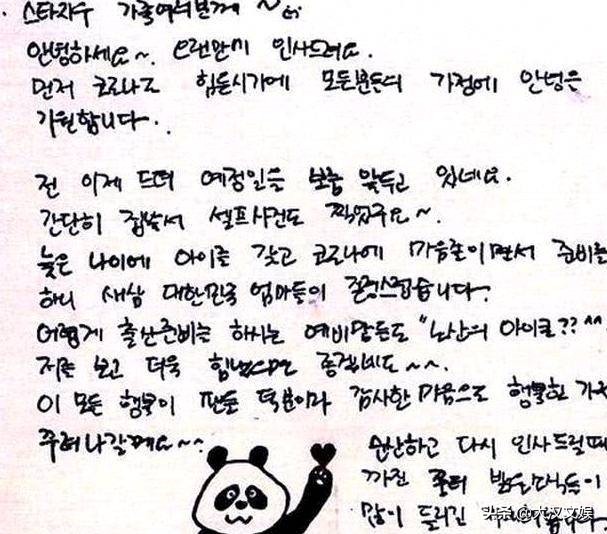 스타지우 가족여러분께 ~
안녕하세요~. 오랜만에 인사드려요.
먼저 코로나로 힘든시기에 모든분들의 가정에 안녕을
기원합니다.
전 이제 드뎌 예정일을 보름 앞두고 있네요.
간단히 집에서 셀프사진도 찍었구요~.
늦은 나이에 아이를 갖고 코로나에 마음졸이면서 준비를
하니 새삼 대한민국 엄마들이 존경스럽습니다.
어렵게 출산준비를 하시는 예비맘들도 "노산의 아이콘??^^
저를 보고 더욱 힘냈으면 좋겠네요~~.
이 모든 행복이 팬분 덕분이라 감사한 마음으로 행복한 가
꾸려나갈께요~~.
순산하고 다시 인사드릴때
까진 좋은 소식들이
많이 들리길
头条 @大汉文娱